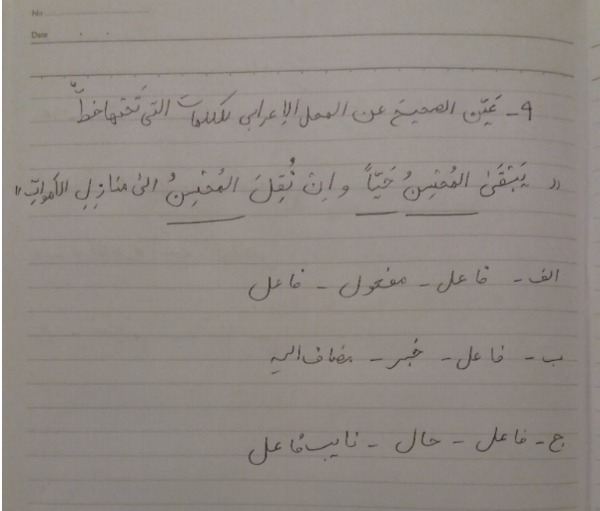 No
Date
٩- عَيِّن الصحيحَ عن المحل الإعرابي للكلماتِ التي تَحتَها خطٌّ
« يَبْقَىٰ المُحْسِنُ حَيّاً و اِنْ نُقِلَ المُحْسِنُ الىٰ منازِلِ الأمواتِ »
الف - فاعل - مفعول - فاعل
ب - فاعل - خبر - مضاف الیه
ج - فاعل - حال - نایب فاعل